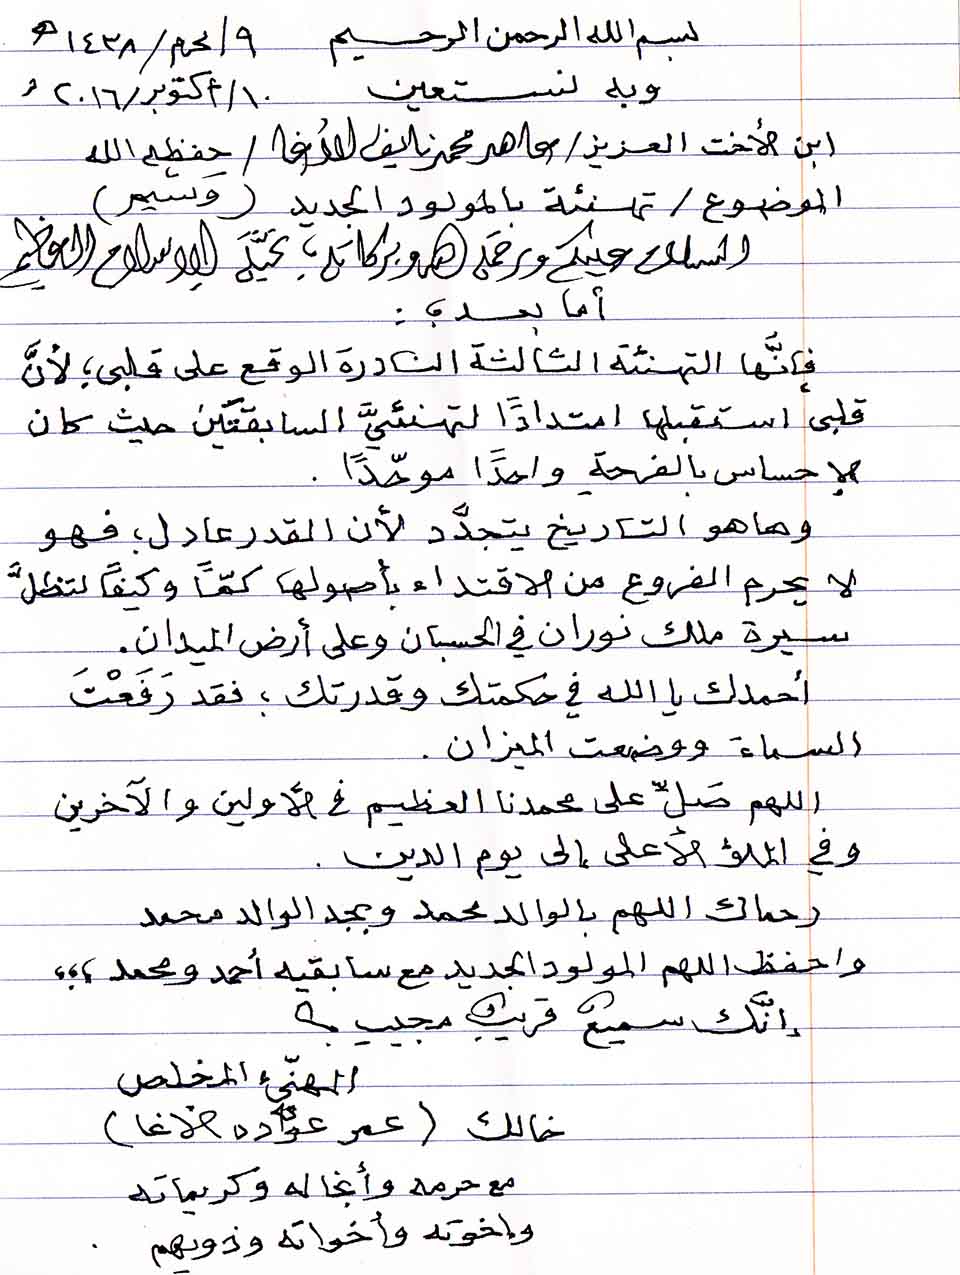 بسم الله الرحمن الرحيم ٩/محرم/١٤٣٨ هـ
وبه نستعين ١٠/أكتوبر/٢٠١٦ م
ابن الأخت العزيز/ ماهر محمد نايف الأغا/ حفظه الله
الموضوع/ تهنئة بالمولود الجديد (وسيم)
السلام عليكم ورحمة الله وبركاته؛ تحيَّة الإسلام العظيم
أما بعد؛ :
فإنَّها التهنئة الثالثة النادرة الوقع على قلبي؛ لأنَّ
قلبي استقبلها امتدادًا لتهنئتيَّ السابقتين حيث كان
الإحساس بالفرحة واحدًا موحّدًا.
وهاهو التاريخ يتجدَّد لأن القدر عادل؛ فهو
لا يحرم الفروع من الاقتداء بأصولها كمًّا وكيفًا لتظلَّ
سيرة ملك نوران في الحسبان وعلى أرض الميدان.
أحمدك يا الله في حكمتك وقدرتك؛ فقد رَفَعْتَ
السماء ووضعت الميزان.
اللهم صَلِّ على محمدنا العظيم في الأولين والآخرين
وفي الملؤ الأعلى إلى يوم الدين.
رحماك اللهم بالوالد محمد وبجد الوالد محمد
واحفظ اللهم المولود الجديد مع سابقيه أحمد ومحمد ؛؛؛
إنَّك سميعٌ قريبٌ مجيب؟
المهنّئ المخلص
خالك (عمر عوّاده الأغا)
مع حرمه وأنجاله وكريماته
وإخوته وأخواته وذويهم.